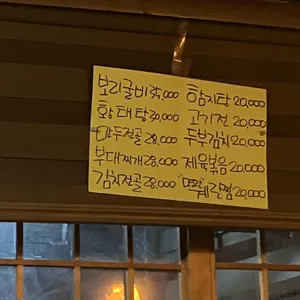 보리굴비 35,000
황태탕 30,000
만두전골 28,000
부대찌개 28,000
김치전골 28,000
홍합탕 20,000
고기전 20,000
두부김치 20,000
제육볶음 20,000
계란찜 20,000